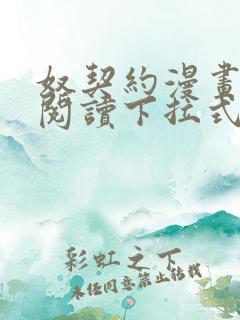 奴契約漫畫
閱讀下拉式
彩虹之下
未经同意禁止转载